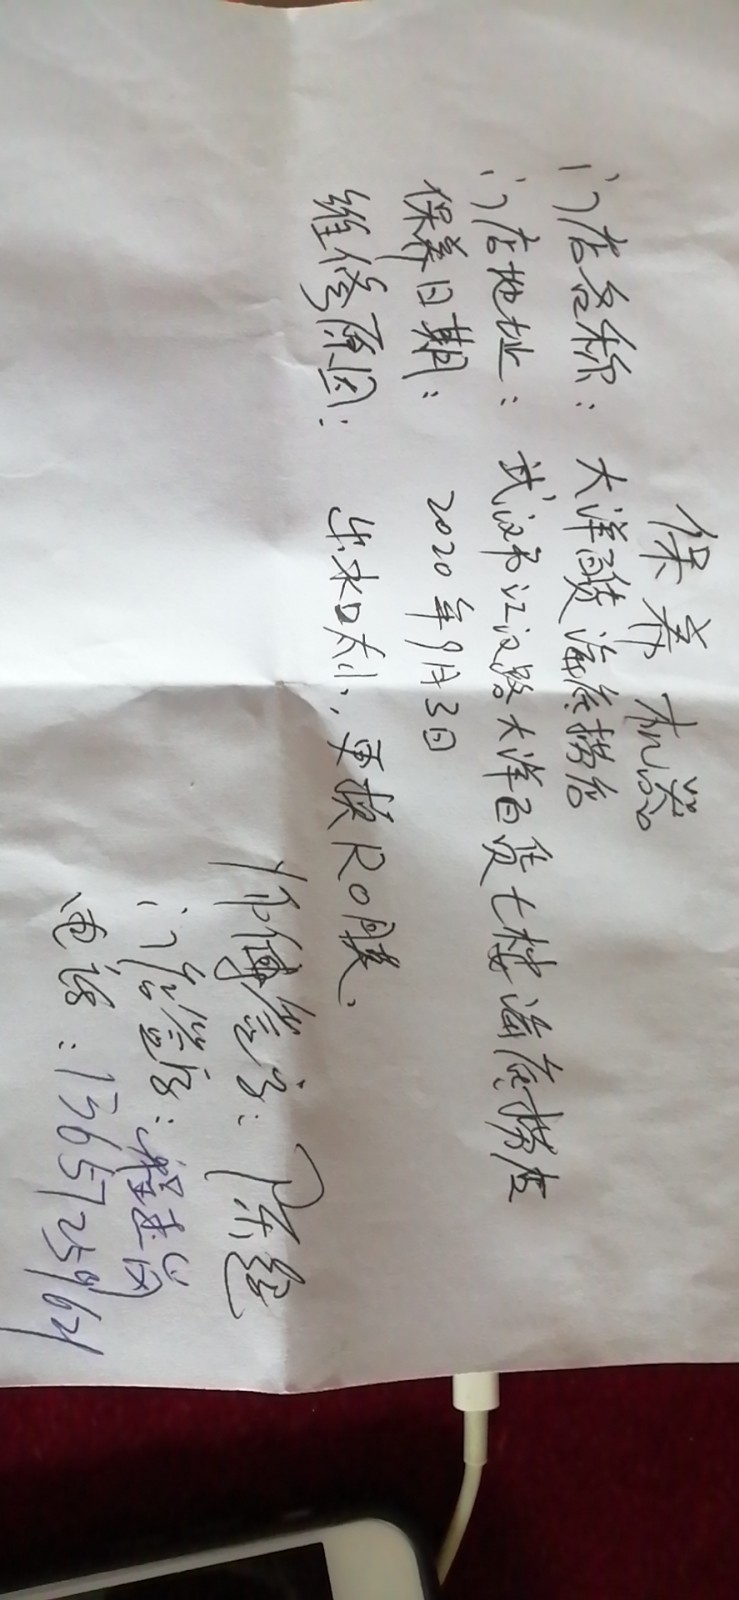 保养机器
门店名称：大洋百货海底捞店
门店地址：武汉市江汉路大洋百货七楼海底捞店
保养日期：2020年9月3日
维修原因：出水口太小，更换RO膜、
师傅签字：陈超
门店签字：
电话：